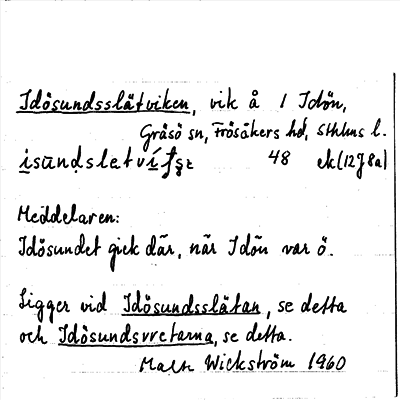 Idösundsslätviken, vik å 1 Idön,
Gräsö sn, Frösåkers hd, Sthlms l.
48 ek (12J8a)
Meddelaren:
Idösundet gick där, när Idön var ö.
Ligger vid Idösundsslätan, se detta
och Idösundsvretarna, se detta.
Malte Wickström 1960